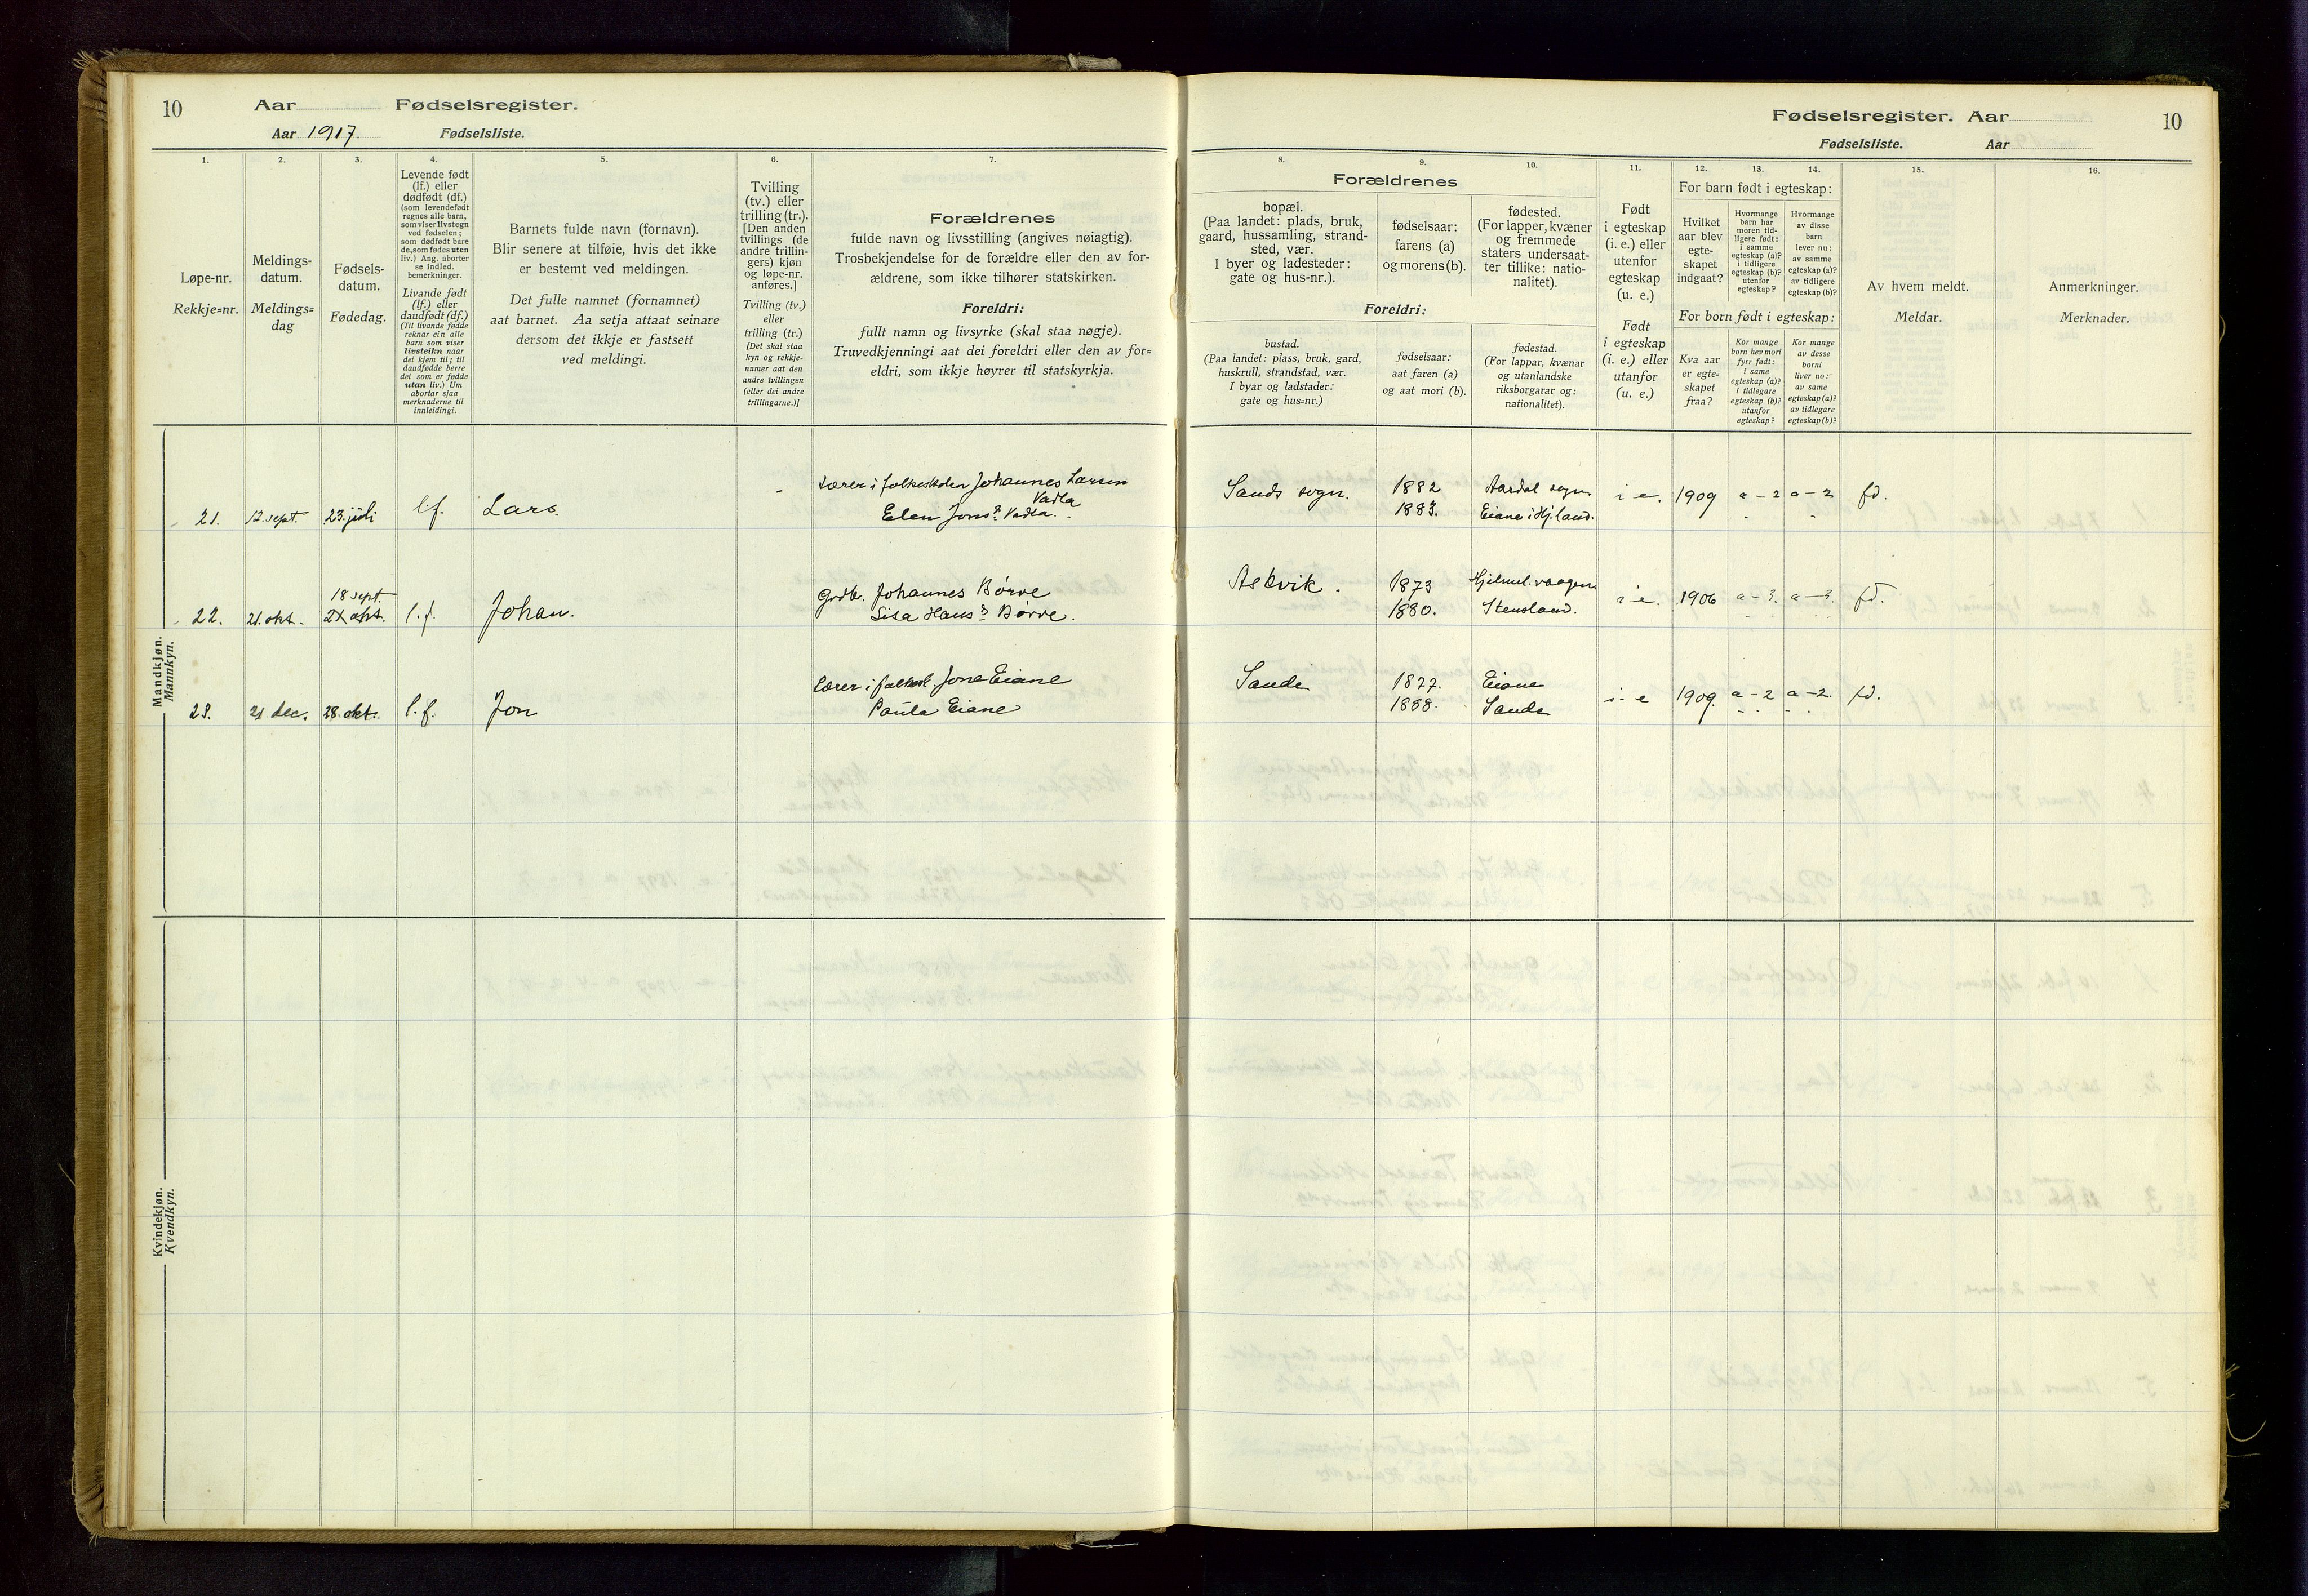 10 Aar Fødselsregister.
Aar 1917. Fødselsliste.
Fødselsregister. Aar 10
Fødselsliste. Aar
1. 2. 3. 4. 5. 6. 7. 8. 9. 10. 11. 12. 13. 14. 15. 16.
Løpe-nr.
Rekkje=nr.
Meldings-
datum.
Meldings=
dag
Fødsels-
datum.
Fødedag.
Levende født
(lf.) eller
dødfødt (df.)
(som levendefødt
regnes alle barn,
som viser livstegn
ved fødselen;
som dødfødt bare
de, som fødes uten
liv.) Ang. aborter
se indled.
bemerkninger.
Livande født
(lf.) eller
daudfødt (df.)
(Til livande fødde
reknar ein alle
barn som viser
livsteikn naar
dei kjem til; til
daudfødde berre
dei som er fødde
utan liv.) Um
abortar sjaa
merknaderne til
innleidingi.
Barnets fulde navn (fornavn).
Blir senere at tilføie, hvis det ikke
er bestemt ved meldingen.
Det fulle namnet (fornamnet)
aat barnet. Aa setja attaat seinare
dersom det ikkje er fastsett
ved meldingi.
Tvilling
(tv.) eller
trilling (tr.).
[Den anden
tvillings (de
andre trillin-
gers) kjøn
og løpe-nr.
anføres.]
Tvilling (tv.)
eller
trilling (tr.)
[Det skal staa
kyn og rekkje-
numer aat den
andre tvillingen
(eller dei andre
trillingarne.)]
Forældrenes
fulde navn og livsstilling (angives nøiagtig).
Trosbekjendelse for de forældre eller den av for-
ældrene, som ikke tilhører statskirken.
Foreldri:
fullt namn og livsyrke (skal staa nøgje).
Truvedkjenningi aat dei foreldri eller den av for=
eldri, som ikkje høyrer til statskyrkja.
Forældrenes
bopæl.
(Paa landet: plads, bruk,
gaard, hussamling, strand-
sted, vær.
I byer og ladesteder:
gate og hus-nr.).
fødselsaar:
farens (a)
og morens (b).
fødested.
(For lapper, kvæner
og fremmede
staters undersaat-
ter tillike: natio-
nalitet).
Foreldri:
bustad.
(Paa landet: plass, bruk, gard,
huskrull, strandstad, vær.
I byar og ladstader:
gate og hus=nr.)
fødselsaar:
aat faren (a)
og aat mori (b).
fødestad.
(For lappar, kvænar
og utanlandske
riksborgarar og:
nationalitet).
Født
i egteskap
(i. e.) eller
utenfor
egteskap
(u. e.)
Født
i egteskap
(i. e.) eller
utanfor
(u. e.)
For barn født i egteskap:
Hvilket
aar blev
egte-
skapet
indgaat?
Hvormange
barn har
moren tid-
ligere født:
i samme
egteskap (a)?
i tidligere
egteskap (b)?
utenfor
egteskap?
Hvormange
av disse
barn
lever nu:
av samme
egteskap (a)?
av tidligere
egteskap (b)?
For born født i egteskap:
Kva aar
er egte=
skapet
fraa?
Kor mange
born hev mori
fyrr født:
i same
egteskap (a)?
i tidlegare
egteskap (b)?
utanfor
egteskap?
Kor mange
av desse
borni
liver no:
av same
egteskap (a)?
av tidlegare
egteskap (b)?
Av hvem meldt.
Meldar.
Anmerkninger.
Merknader.
Mandkjøn.
Mannkyn.
21. 12. sept. 23. juli l.f. Lars. - Lærer i folkeskolen Johannes Larsen
Vadla
Elen Jonsd. Vadla. Sands sogn. 1882 Aardal sogn
1883. Eiane i Hj.land. i e. 1909 a-2 a-2 fd.
18 sept
22. 21. okt. 21 okt. l.f. Johan. Grdbr. Johannes Børve
Lisa Hansd. Børve. Askvik. 1873 Hjelmel. vaagen
1880. Stensland. i e. 1906 a-3. a-3. fd.
23. 21 dec. 28. okt. l.f. Jon Lærer i folkesk. Jone Eiane
Paula Eiane Sande 1877. Eiane
1888. Sande i e 1909. a-2 a-2. fd.
Kvindekjøn.
Kvendkyn.